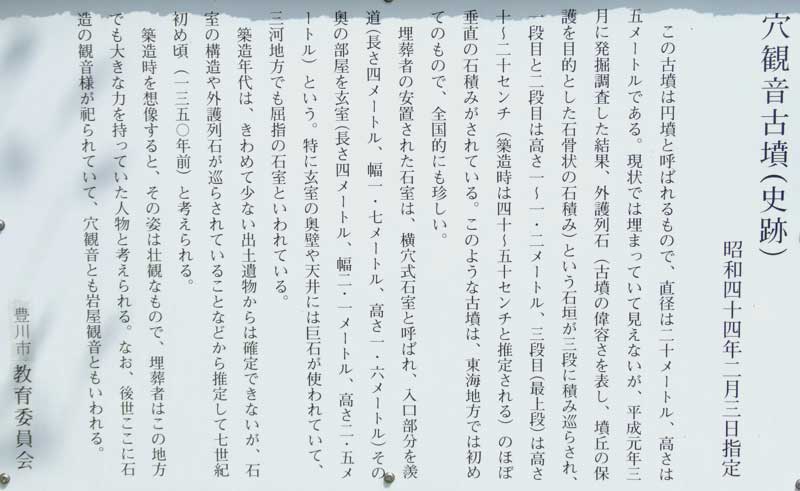 穴観音古墳(史跡)
昭和四十四年二月三日指定
この古墳は円墳と呼ばれるもので、直径は二十メートル、高さは
五メートルである。現状では埋まっていて見えないが、平成元年三
月に発掘調査した結果、外護列石（古墳の偉容さを表し、墳丘の保
護を目的とした石骨状の石積み）という石垣が三段に積み巡らされ、
一段目と二段目は高さ一〜一・二メートル、三段目(最上段)は高さ
十〜二十センチ（築造時は四十〜五十センチと推定される）のほぼ
垂直の石積みがされている。このような古墳は、東海地方では初め
てのもので、全国的にも珍しい。
埋葬者の安置された石室は、横穴式石室と呼ばれ、入口部分を羨
道(長さ四メートル、幅一・七メートル、高さ一・六メートル)その
奥の部屋を玄室(長さ四メートル、幅二・一メートル、高さ二・五メ
ートル）という。特に玄室の奥壁や天井には巨石が使われていて、
三河地方でも屈指の石室といわれている。
築造年代は、きわめて少ない出土遺物からは確定できないが、石
室の構造や外護列石が巡らされていることなどから推定して七世紀
初め頃、（一三五〇年前）と考えられる。
築造時を想像すると、その姿は壮観なもので、埋葬者はこの地方
でも大きな力を持っていた人物と考えられる。なお、後世ここに石
造の観音様が祀られていて、穴観音とも岩屋観音ともいわれる。
豊川市教育委員会